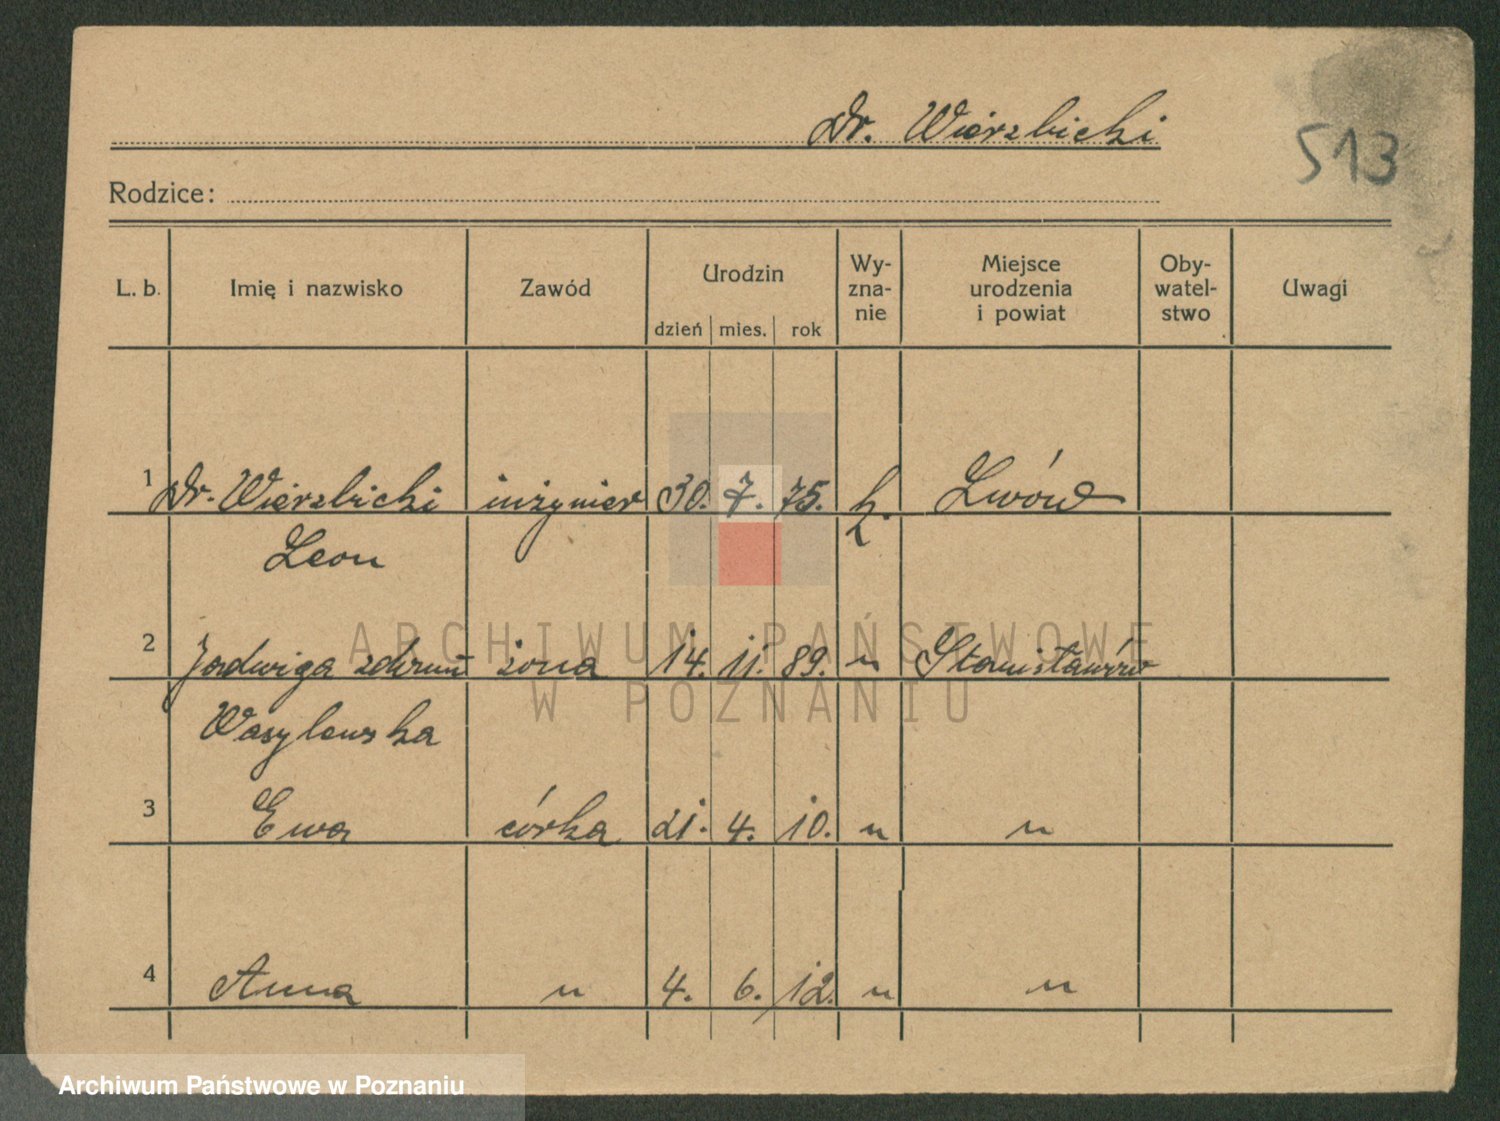 Dr. Wierzbicki
513
Rodzice:
L. b. Imię i nazwisko Zawód Urodzin dzień mies. rok Wy- zna- nie Miejsce urodzenia i powiat Oby- watel- stwo Uwagi
1 Dr. Wierzbicki inżynier 30. 7. 75. k. Lwów
Leon
2 Jadwiga żona 14. 11. 89. " Stanisławów
Wasylewska
3 Ewa córka 21. 4. 10. " "
4 Anna " 4. 6. 12. " "
ARCHIWUM PAŃSTWOWE
W POZNANIU
Archiwum Państwowe w Poznaniu